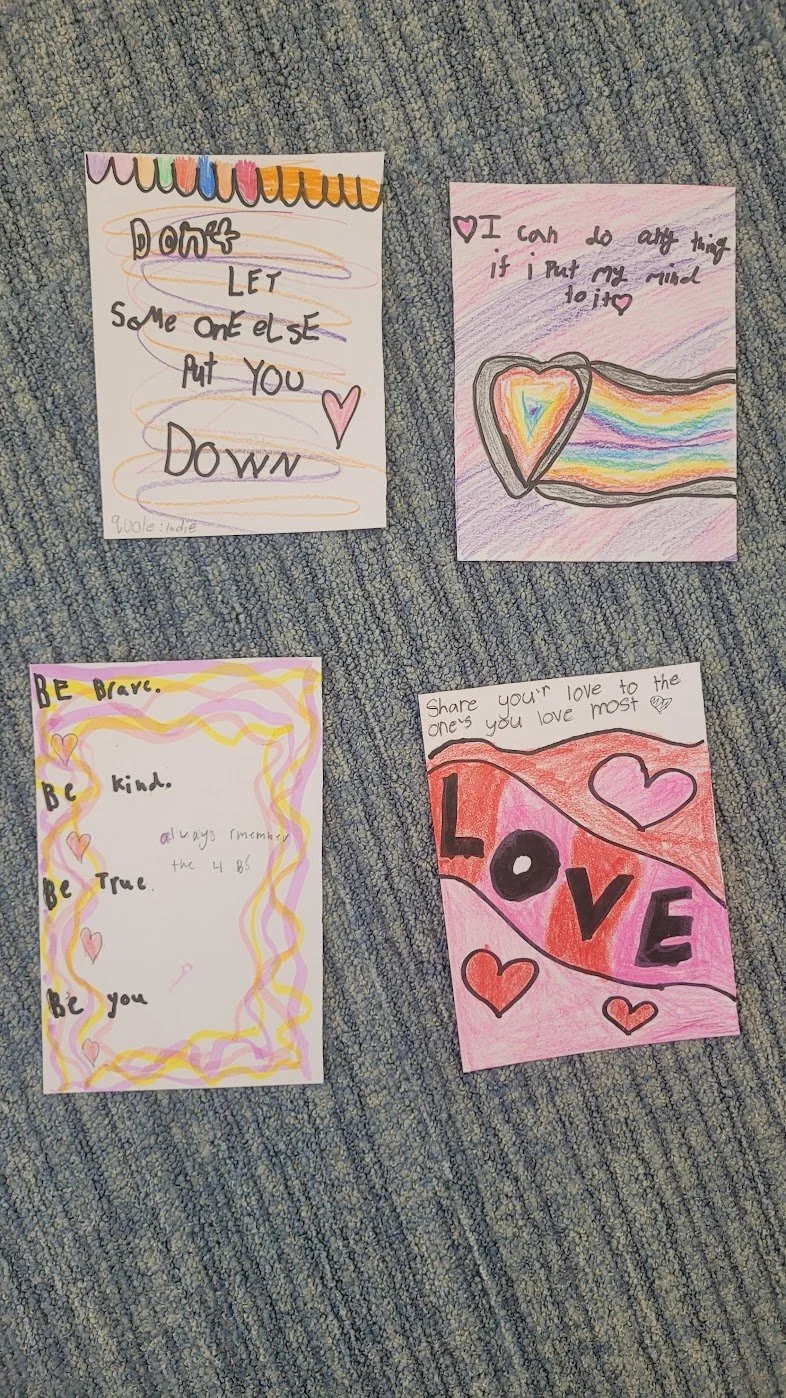 Don't
LET
SoMe onE eLsE
Put YOU
DOWN
quote: Indie
I can do any thing
if i put my mind
to it
BE Brave.
Be kind.
always rmember
the 4 B's
Be True.
Be you
Share you'r love to the
one's you love most
LOVE